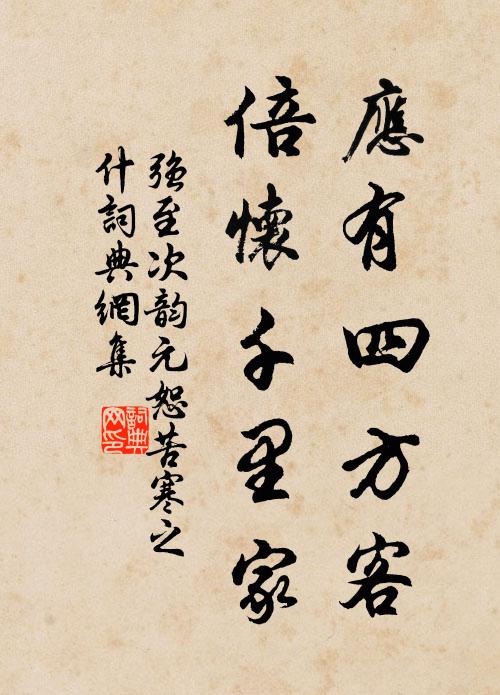 應有四方客
倍懷千里家
強至次韵元恕苦寒之
什詞典網集
詞典
网印